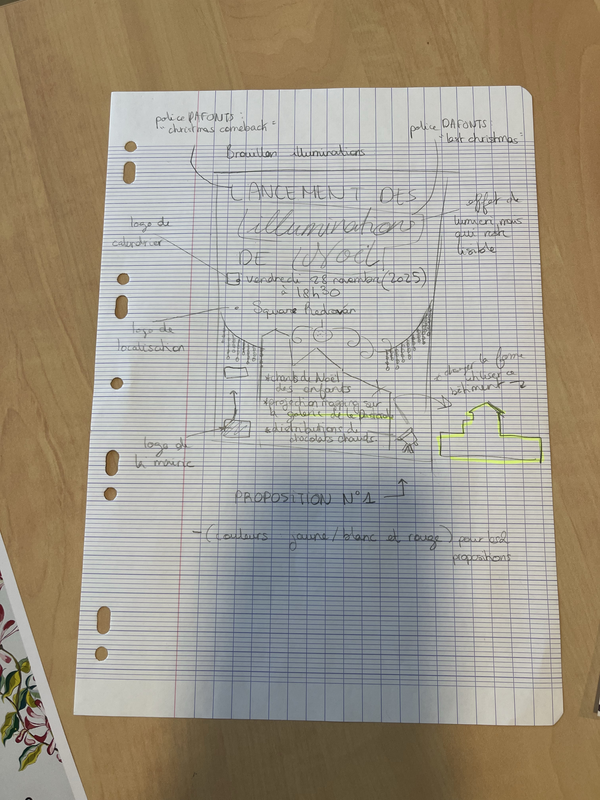 police DAFONTS :
"christmas comeback"
police DAFONTS :
"last christmas"
Brouillon illuminations
LANCEMENT DES
illuminations
DE Noël
effet de
lumière mais
qui reste
lisible
logo de
calendrier
vendredi 28 novembre (2025)
à 18h30
Square
logo de
localisation
* chants de Noël
des enfants
* projection mapping sur
la galerie de la
* distributions de
chocolats chauds
changer la forme
utiliser ce
bâtiment
logo de
la mairie
PROPOSITION N°1
- (couleurs jaune/blanc et rouge) pour les 2
propositions